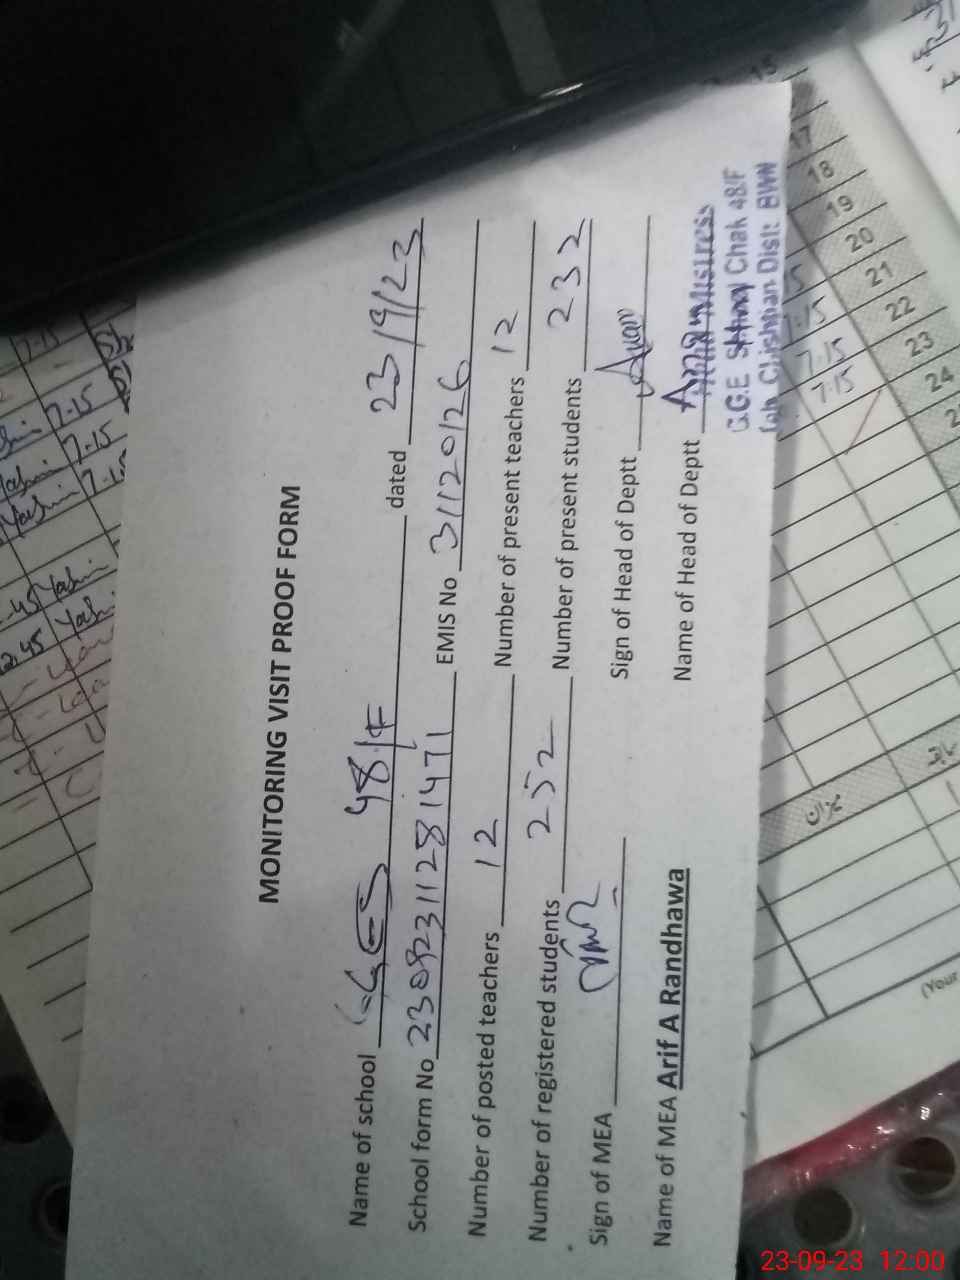 MONITORING VISIT PROOF FORM
Name of school GGES 48/F dated 23/9/23
School form No 23092311281471 EMIS No 31120126
Number of posted teachers 12 Number of present teachers 12
Number of registered students 252 Number of present students 232
Sign of MEA Sign of Head of Deptt
Name of MEA Arif A Randhawa Name of Head of Deptt
G.G.E School Chak 48/F
Teh. Chishtian Distt: BWN
7-15
7-15
7-15
7-15
2.45
7:15
7:15
7:15
17
18
19
20
21
22
23
24
میزان
سابقہ
(Your
23-09-23 12:00